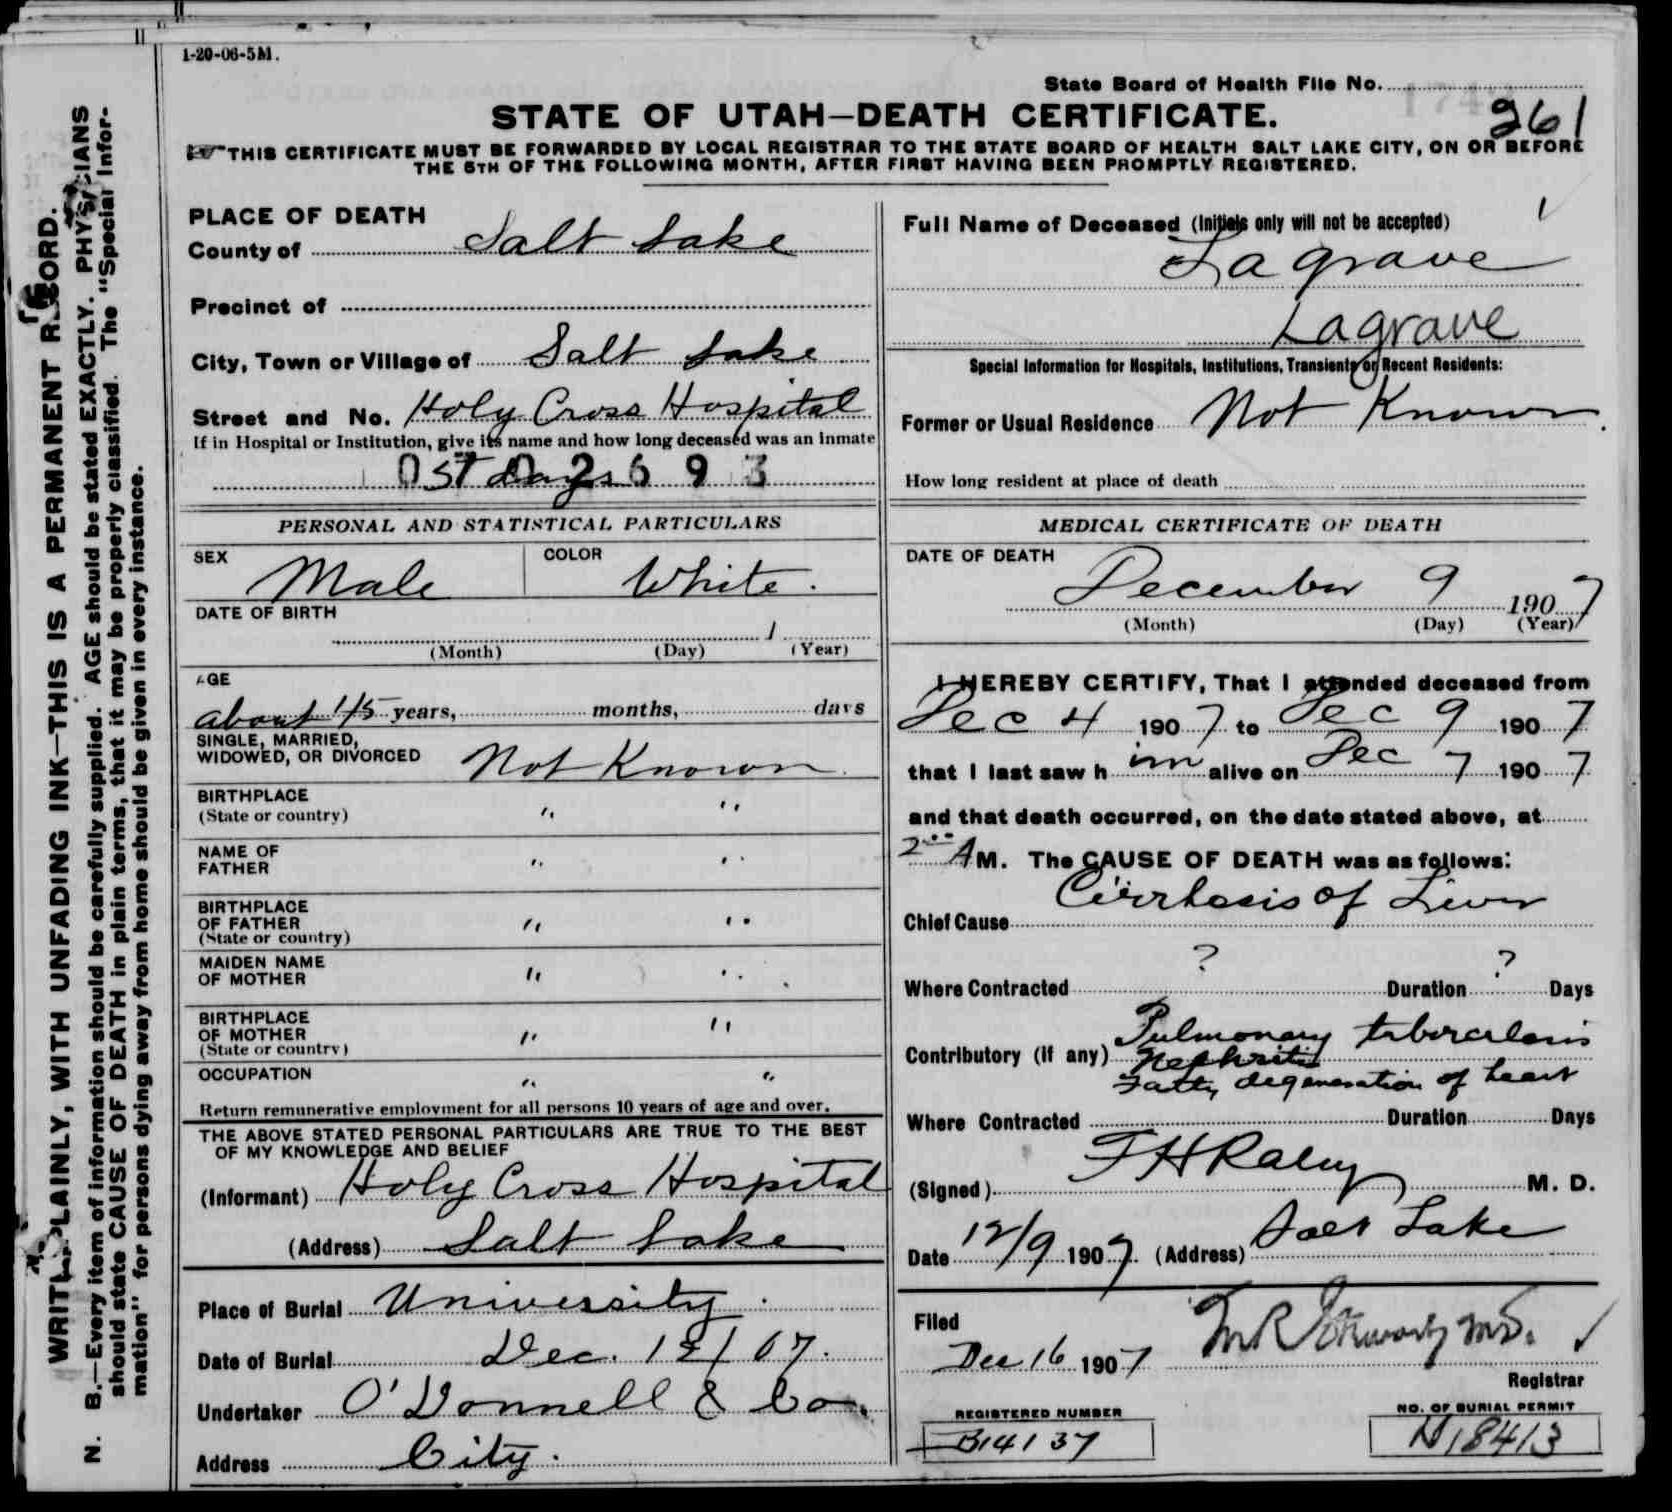 1-20-06-5M.
State Board of Health File No.
261
STATE OF UTAH—DEATH CERTIFICATE.
THIS CERTIFICATE MUST BE FORWARDED BY LOCAL REGISTRAR TO THE STATE BOARD OF HEALTH SALT LAKE CITY, ON OR BEFORE
THE 5TH OF THE FOLLOWING MONTH, AFTER FIRST HAVING BEEN PROMPTLY REGISTERED.
WRITE PLAINLY, WITH UNFADING INK—THIS IS A PERMANENT RECORD.
N. B.—Every item of information should be carefully supplied. AGE should be stated EXACTLY. PHYSICIANS
should state CAUSE OF DEATH in plain terms, that it may be properly classified. The "Special Infor-
mation" for persons dying away from home should be given in every instance.
PLACE OF DEATH
County of Salt Lake
Precinct of
City, Town or Village of Salt Lake
Street and No. Holy Cross Hospital
If in Hospital or Institution, give its name and how long deceased was an inmate
days
PERSONAL AND STATISTICAL PARTICULARS
SEX Male COLOR White.
DATE OF BIRTH
1
(Month) (Day) (Year)
AGE
about 45 years, months, days
SINGLE, MARRIED,
WIDOWED, OR DIVORCED Not Known
BIRTHPLACE
(State or country) " "
NAME OF
FATHER " "
BIRTHPLACE
OF FATHER
(State or country) " "
MAIDEN NAME
OF MOTHER " "
BIRTHPLACE
OF MOTHER
(State or country) " "
OCCUPATION " "
Return remunerative employment for all persons 10 years of age and over.
THE ABOVE STATED PERSONAL PARTICULARS ARE TRUE TO THE BEST
OF MY KNOWLEDGE AND BELIEF
(Informant) Holy Cross Hospital
(Address) Salt Lake
Place of Burial University.
Date of Burial Dec. 12/07.
Undertaker O'Donnell & Co.
Address City.
Full Name of Deceased (Initials only will not be accepted)
Lagrave
Lagrave
Special Information for Hospitals, Institutions, Transients or Recent Residents:
Former or Usual Residence Not Known.
How long resident at place of death
MEDICAL CERTIFICATE OF DEATH
DATE OF DEATH
December 9 1907
(Month) (Day) (Year)
I HEREBY CERTIFY, That I attended deceased from
Dec 4 1907 to Dec 9 1907
that I last saw h im alive on Dec 7 1907
and that death occurred, on the date stated above, at
2 00 A M. The CAUSE OF DEATH was as follows:
Chief Cause Cirrhosis of Liver
Where Contracted ? Duration ? Days
Pulmonary tuberculosis
Contributory (If any) Nephritis
Fatty degeneration of heart
Where Contracted Duration Days
(Signed) M. D.
Date 12/9 1907. (Address) Salt Lake
Filed
Dec 16 1907
Registrar
REGISTERED NUMBER
B14137
NO. OF BURIAL PERMIT
18413